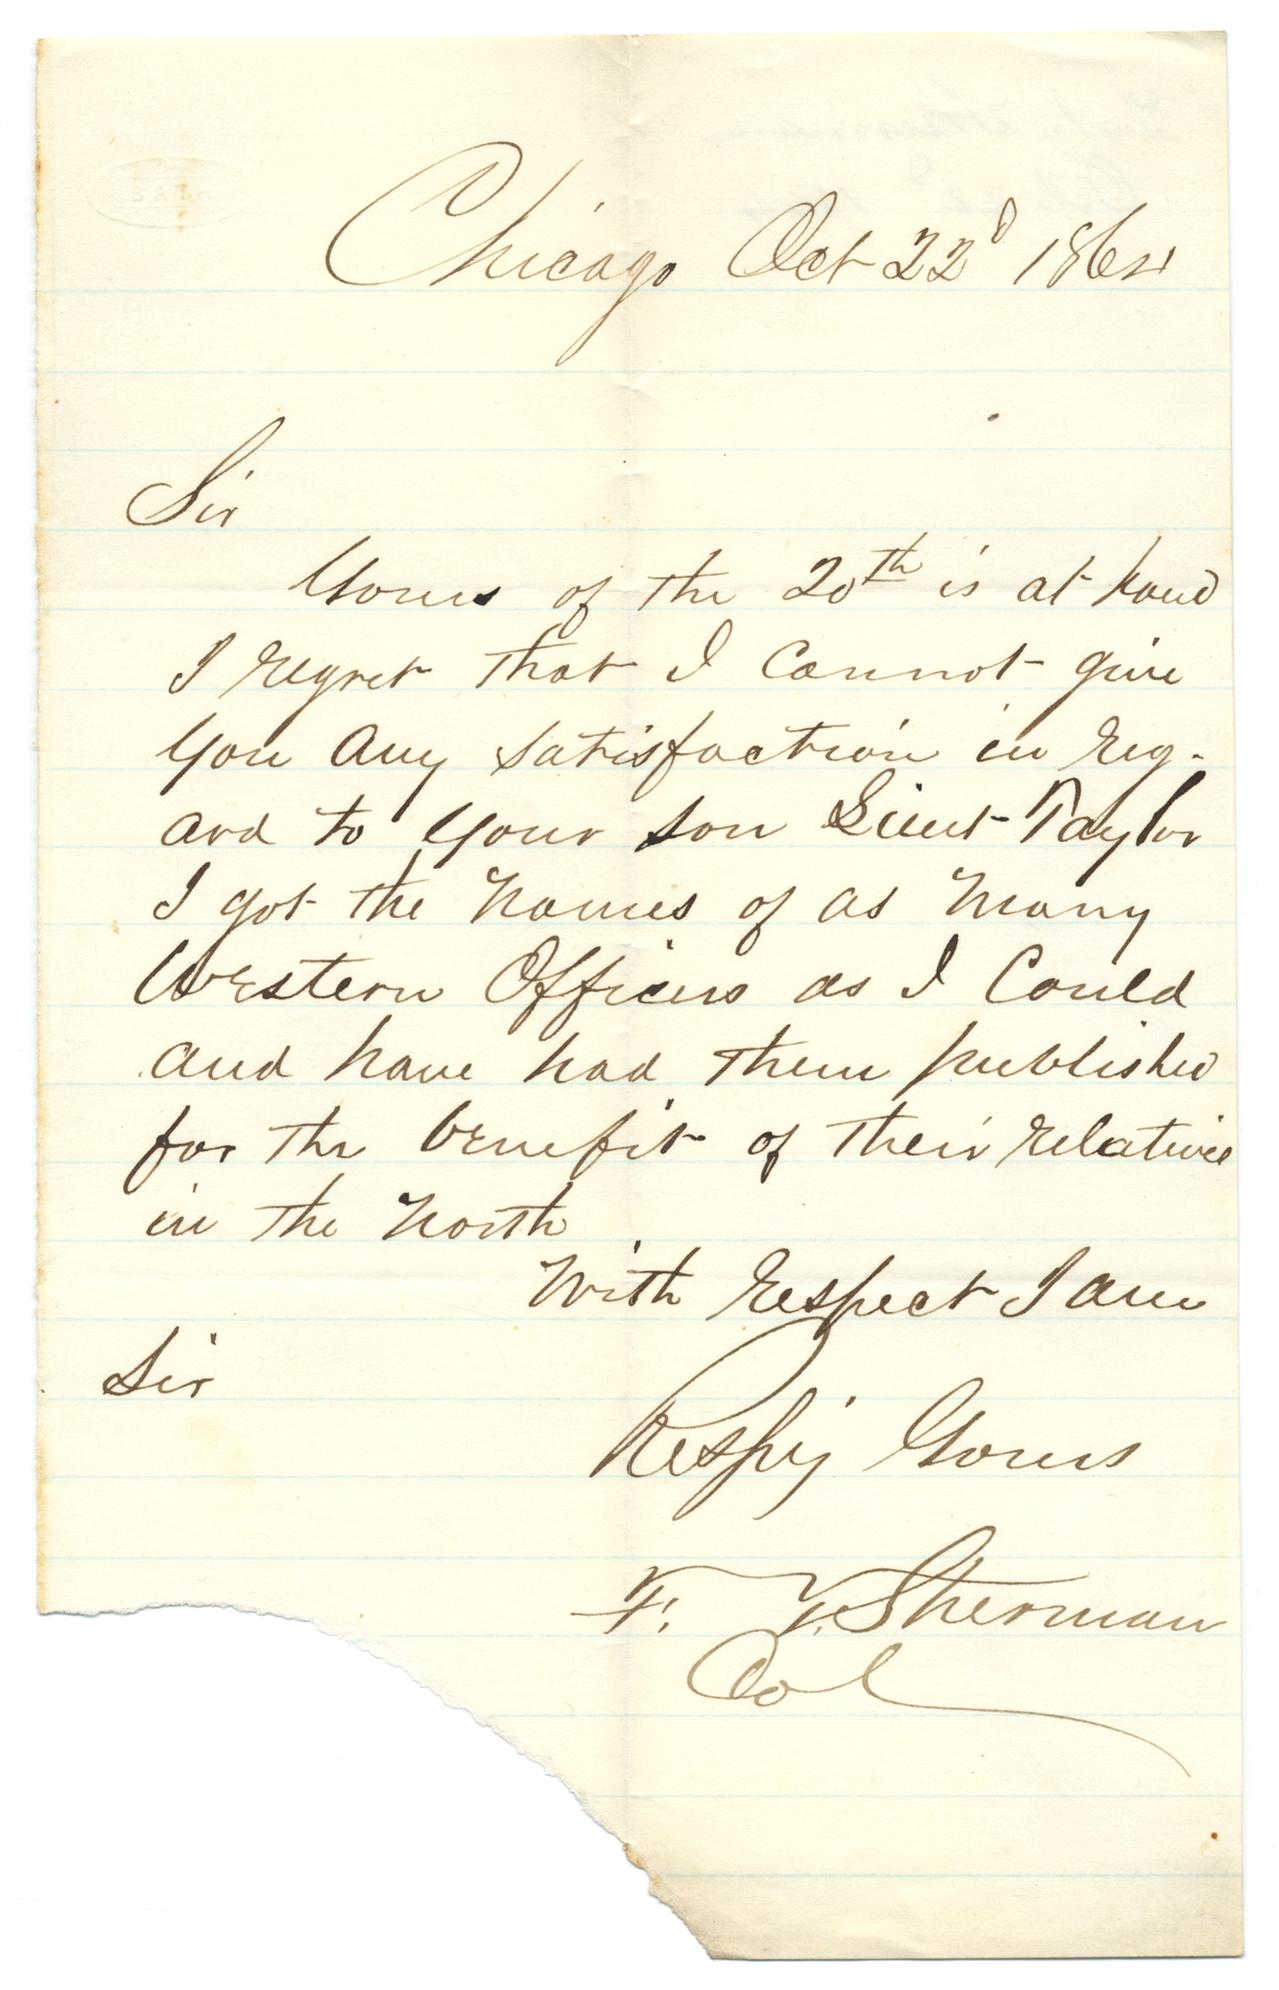 Chicago Oct 22d 1864
Sir
Yours of the 20th is at hand
I regret that I cannot give
you any satisfaction in reg-
ard to your son Lieut Taylor
I got the names of as many
Western Officers as I could
and have had them published
for the benefit of their relatives
in the North
With respect I am
Sir
Respy Yours
F. T. Sherman
Col